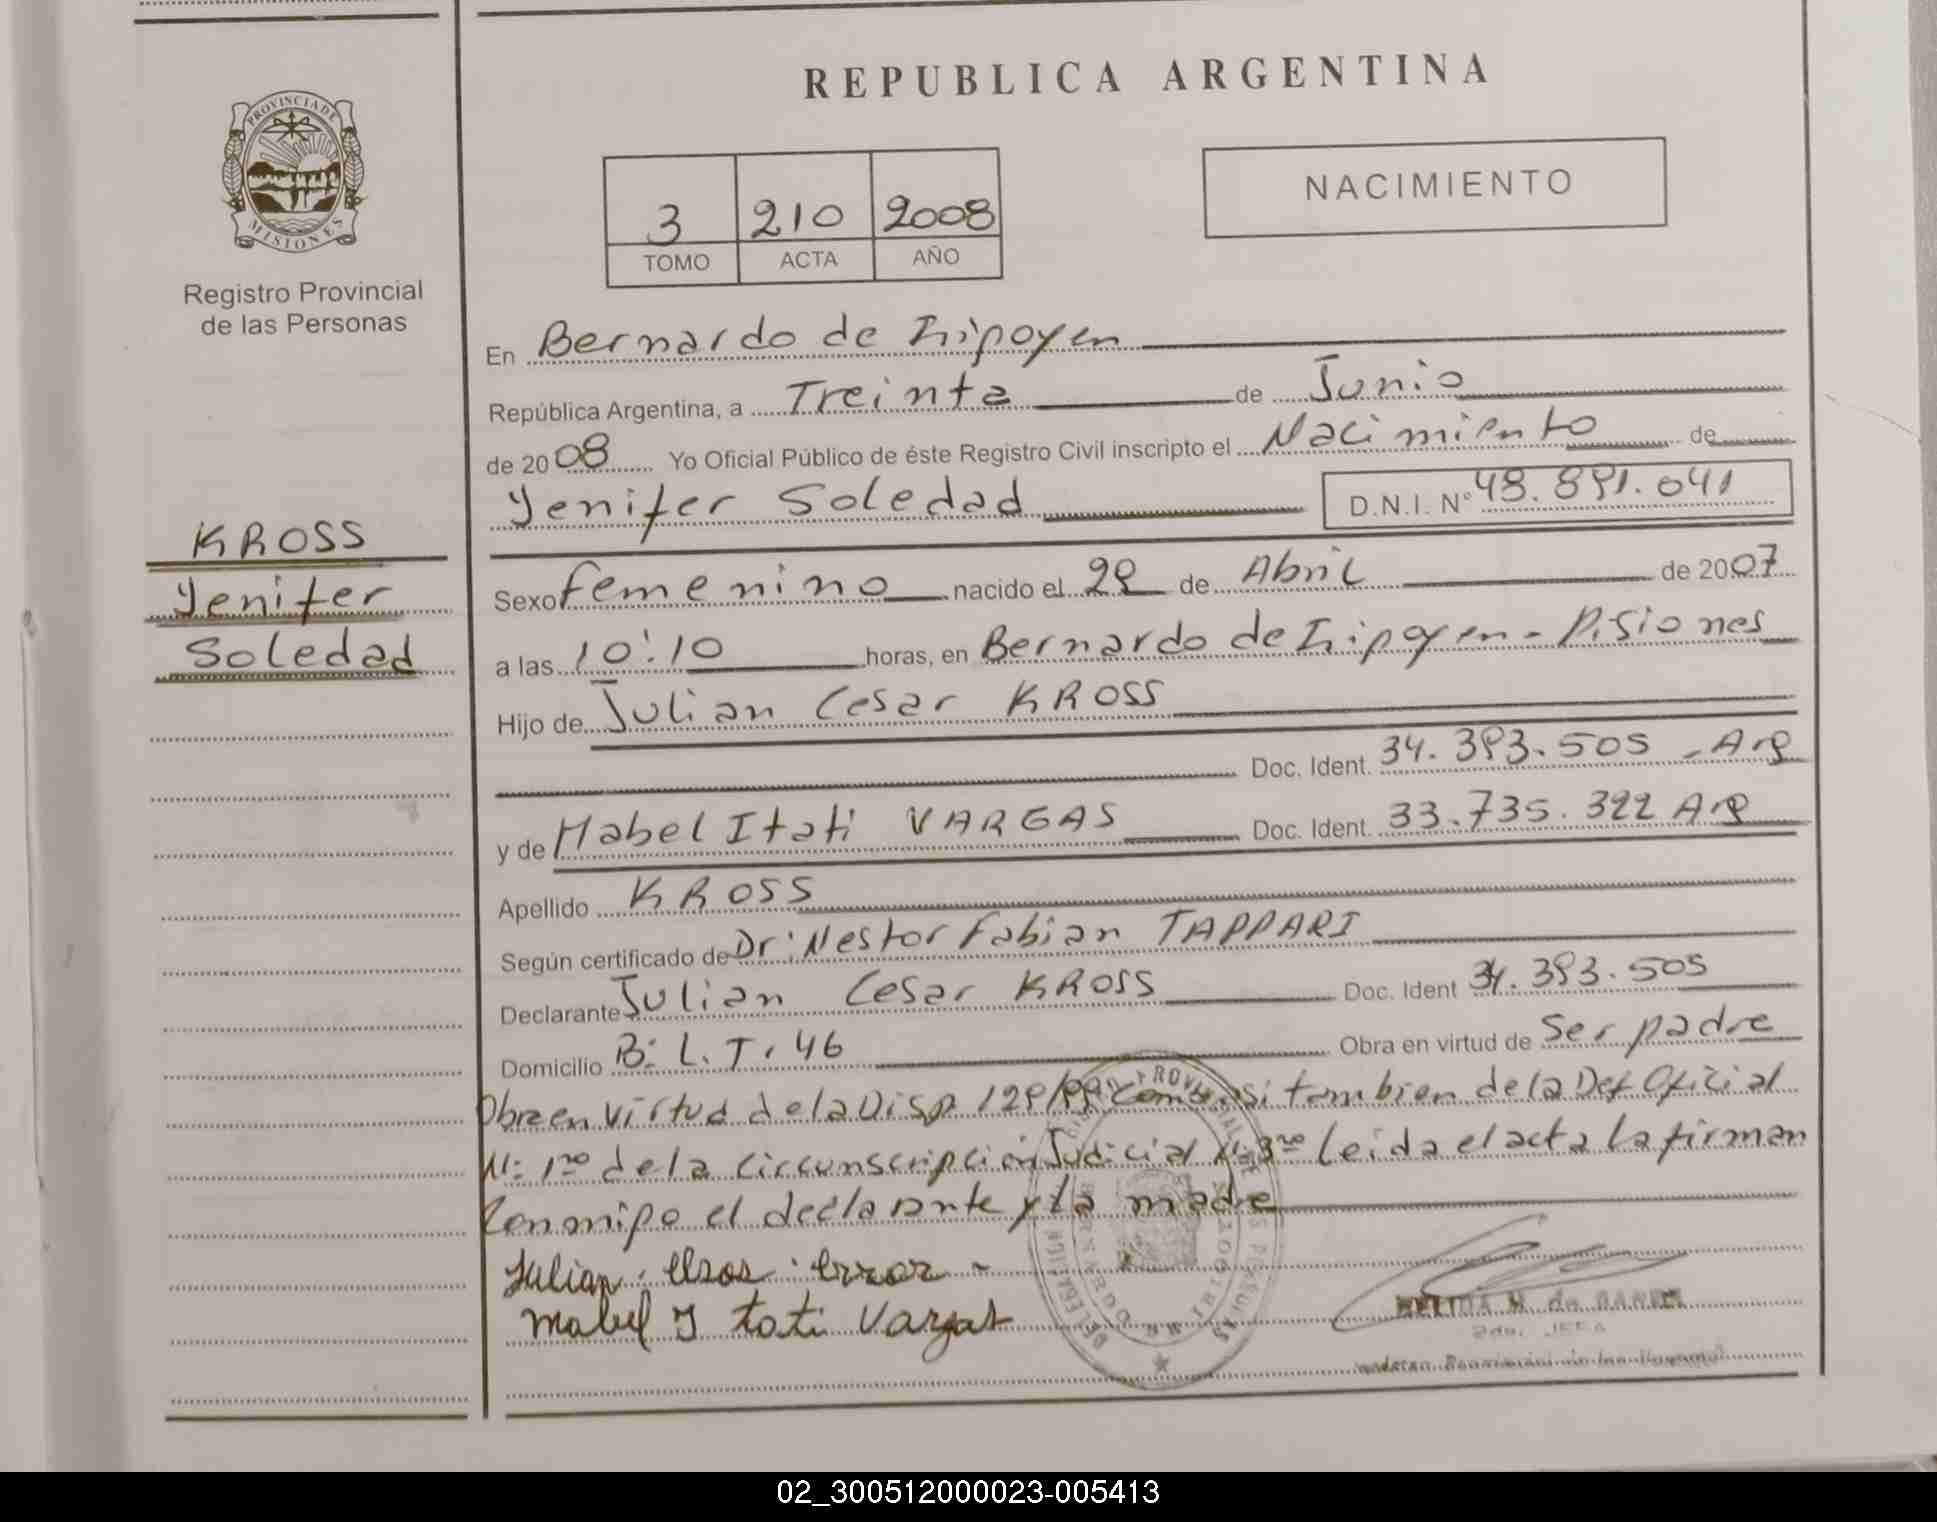 REPUBLICA ARGENTINA
PROVINCIA DE
MISIONES
Registro Provincial
de las Personas
3 210 2008
TOMO ACTA AÑO
NACIMIENTO
KROSS
Yenifer
Soledad
En Bernardo de Irigoyen
República Argentina, a Treinta de Junio
de 2008 Yo Oficial Público de éste Registro Civil inscripto el Nacimiento de
Yenifer Soledad D.N.I. Nº 48.891.041
Sexo femenino nacido el 29 de Abril de 2007
a las 10:10 horas, en Bernardo de Irigoyen - Misiones
Hijo de Julian Cesar KROSS
Doc. Ident. 34.393.505 - Arg
y de Mabel Itati VARGAS Doc. Ident. 33.735.322 Arg
Apellido KROSS
Según certificado de Dr: Nestor Fabian TAPPARI
Declarante Julian Cesar KROSS Doc. Ident 34.393.505
Domicilio B: L.T. 46 Obra en virtud de Ser padre
Obra en virtud de la Disp 129/99 Como asi tambien de la Def Oficial
Nº 1ro de la circunscripción Judicial Nº 3ro leida el acta la firman
Conmigo el declarante y la madre
Julian Cesar
Mabel I tati Vargas
02_300512000023-005413